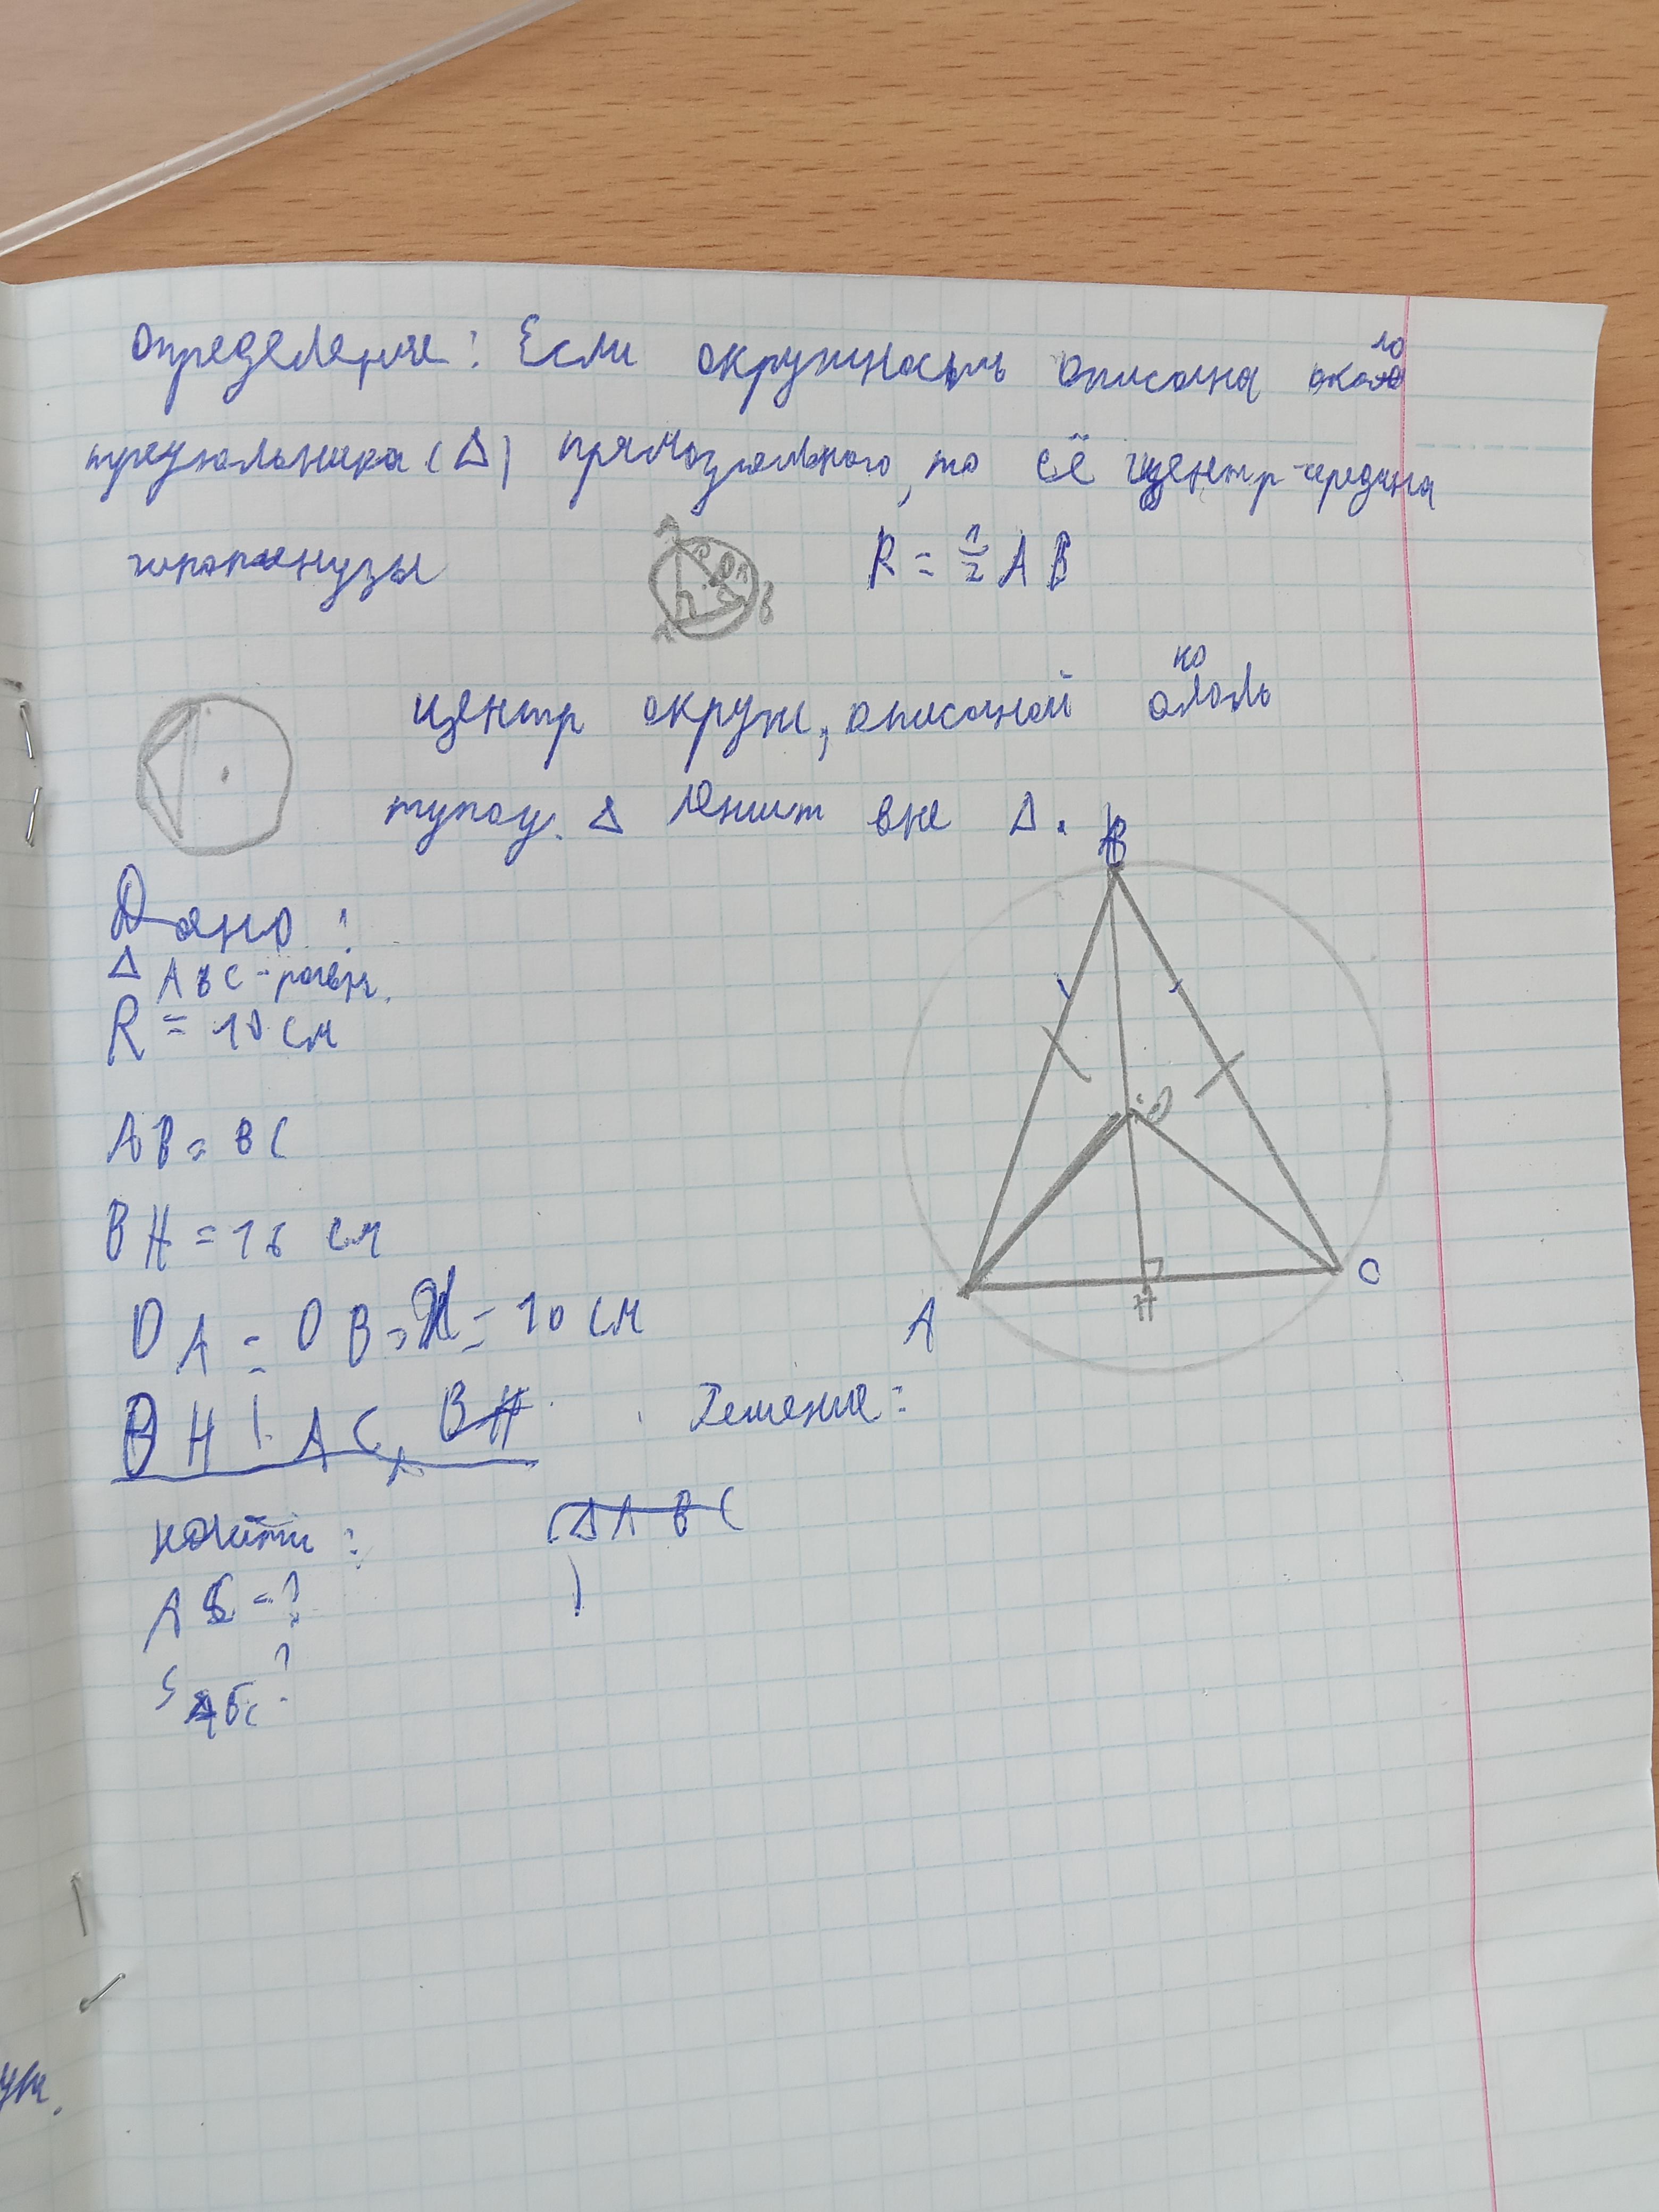 Определение: Если окружность описана около
треугольника (Δ) прямоугольного, то её центр - середина
гипотенузы
R = 1/2 AB
центр окруж, описаной
тупоу. Δ лежит вне Δ.
B
Дано:
Δ ABC - равн.
R = 10 см
AB = BC
BH = 16 см
O
OA = OB = = 10 см
H
A
C
BH ⊥ AC,
Решение:
найти:
ΔABC
AC - ?
S ABC ?